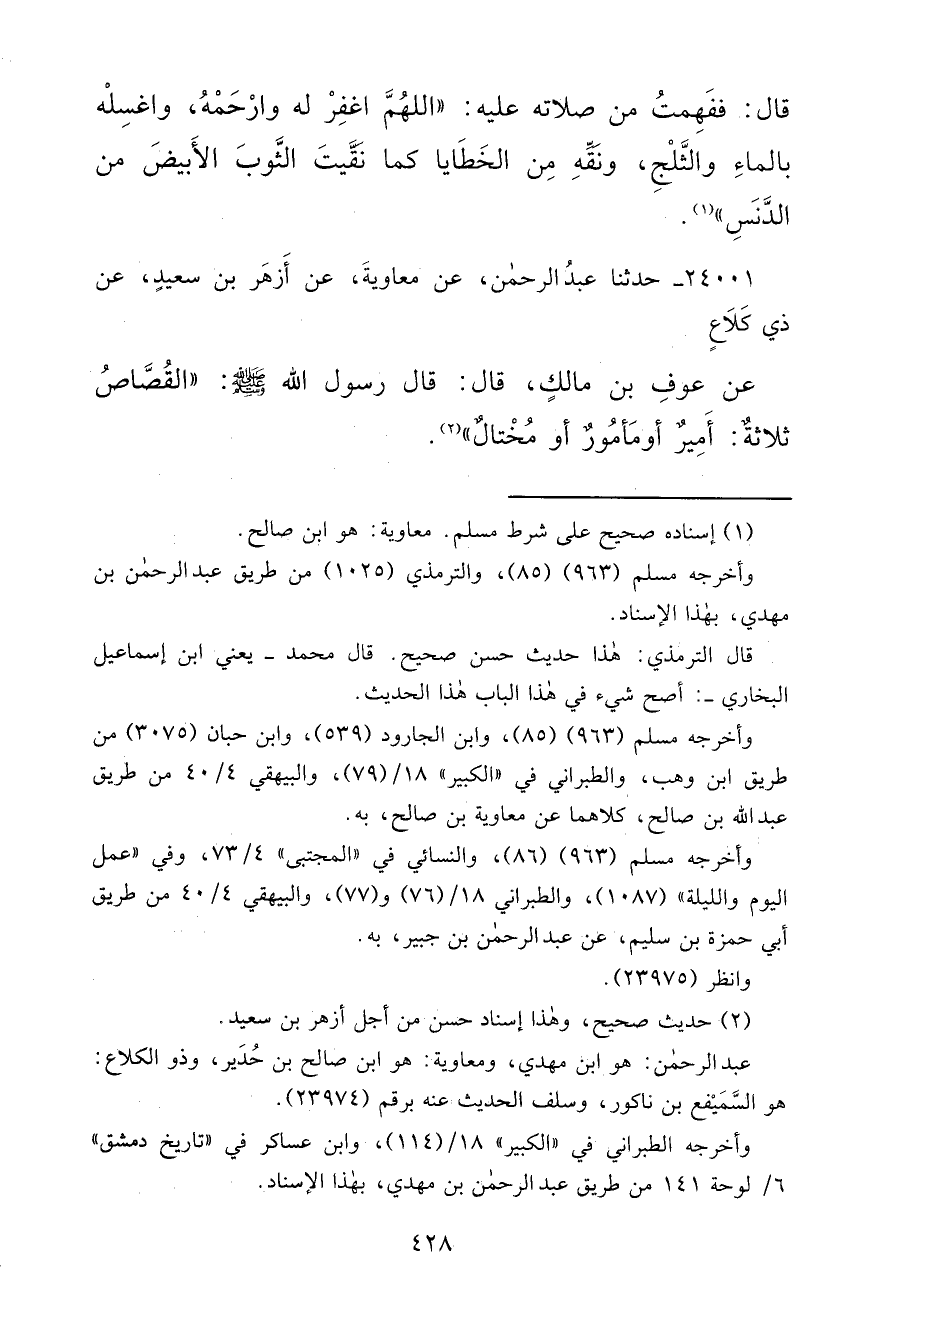 قال: ففَهِمتُ من صلاته عليه: «اللهُمَّ اغفِرْ له وارْحَمْهُ، واغسِلْه
بالماءِ والثَّلْجِ، ونَقِّهِ مِن الخَطَايا كما نَقَّيتَ الثَّوبَ الأَبيضَ من
الدَّنَسِ»(١).
٢٤٠٠١ـ حدثنا عبدُ الرحمٰن، عن معاويةَ، عن أَزهَر بن سعيدٍ، عن
ذي كَلَاعٍ
عن عوفِ بن مالكٍ، قال: قال رسول الله ﷺ: «القُصَّاصُ
ثلاثةٌ: أَمِيرٌ أو مَأمُورٌ أو مُخْتالٌ»(٢).
(١) إسناده صحيح على شرط مسلم. معاوية: هو ابن صالح.
وأخرجه مسلم (٩٦٣) (٨٥)، والترمذي (١٠٢٥) من طريق عبد الرحمٰن بن
مهدي، بهٰذا الإسناد.
قال الترمذي: هٰذا حديث حسن صحيح. قال محمد ـ يعني ابن إسماعيل
البخاري ـ: أصح شيء في هٰذا الباب هٰذا الحديث.
وأخرجه مسلم (٩٦٣) (٨٥)، وابن الجارود (٥٣٩)، وابن حبان (٣٠٧٥) من
طريق ابن وهب، والطبراني في «الكبير» ١٨/(٧٩)، والبيهقي ٤٠/٤ من طريق
عبد الله بن صالح، كلاهما عن معاوية بن صالح، به.
وأخرجه مسلم (٩٦٣) (٨٦)، والنسائي في «المجتبى» ٧٣/٤، وفي «عمل
اليوم والليلة» (١٠٨٧)، والطبراني ١٨/(٧٦) و(٧٧)، والبيهقي ٤٠/٤ من طريق
أبي حمزة بن سليم، عن عبد الرحمٰن بن جبير، به.
وانظر (٢٣٩٧٥).
(٢) حديث صحيح، وهٰذا إسناد حسن من أجل أزهر بن سعيد.
عبد الرحمٰن: هو ابن مهدي، ومعاوية: هو ابن صالح بن حُدَير، وذو الكلاع:
هو السَّمَيْفع بن ناكور، وسلف الحديث عنه برقم (٢٣٩٧٤).
وأخرجه الطبراني في «الكبير» ١٨/(١١٤)، وابن عساكر في «تاريخ دمشق»
٦/ لوحة ١٤١ من طريق عبد الرحمٰن بن مهدي، بهٰذا الإسناد.
٤٢٨